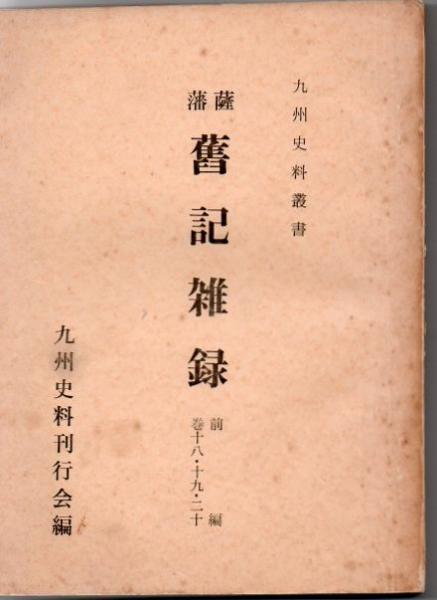 九州史料叢書
薩藩
舊記雑録
前編
巻十八・十九・二十
九州史料刊行会編